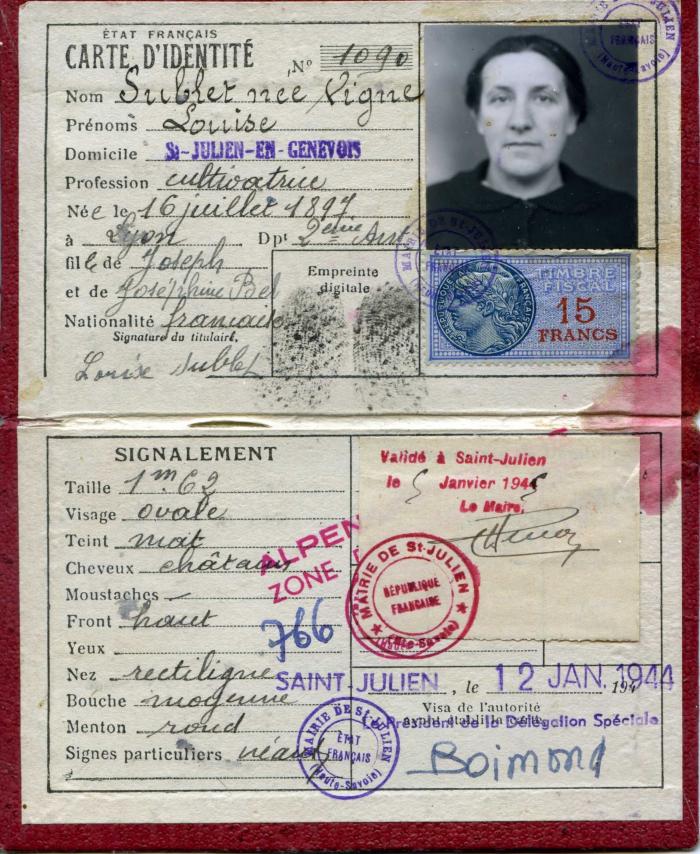 ÉTAT FRANÇAIS
CARTE D'IDENTITÉ
N° 1090
Nom Sublet née Vigne
Prénoms Louise
Domicile St-JULIEN-EN-GENEVOIS
Profession cultivatrice
Née le 16 juillet 1897
à Lyon Dpt 2eme Arrt
fille de Joseph
et de Joséphine Bel
Nationalité française
Signature du titulaire,
Louise Sublet
Empreinte
digitale
TIMBRE
FISCAL
15
FRANCS
MAIRIE DE St-JULIEN
ÉTAT
FRANÇAIS
(Haute-Savoie)
SIGNALEMENT
Taille 1m62
Visage ovale
Teint mat
Cheveux châtains
Moustaches —
Front haut
Yeux
Nez rectiligne
Bouche moyenne
Menton rond
Signes particuliers néant
ALPEN
ZONE
766
Validé à Saint-Julien
le 5 Janvier 1945
Le Maire,
MAIRIE DE St-JULIEN
RÉPUBLIQUE
FRANÇAISE
(Hte-Savoie)
SAINT JULIEN, le 12 JAN. 1944
Visa de l'autorité
ayant établi la carte,
Le Président de la Délégation Spéciale
Boimond
MAIRIE DE St-JULIEN
ÉTAT
FRANÇAIS
(Haute-Savoie)